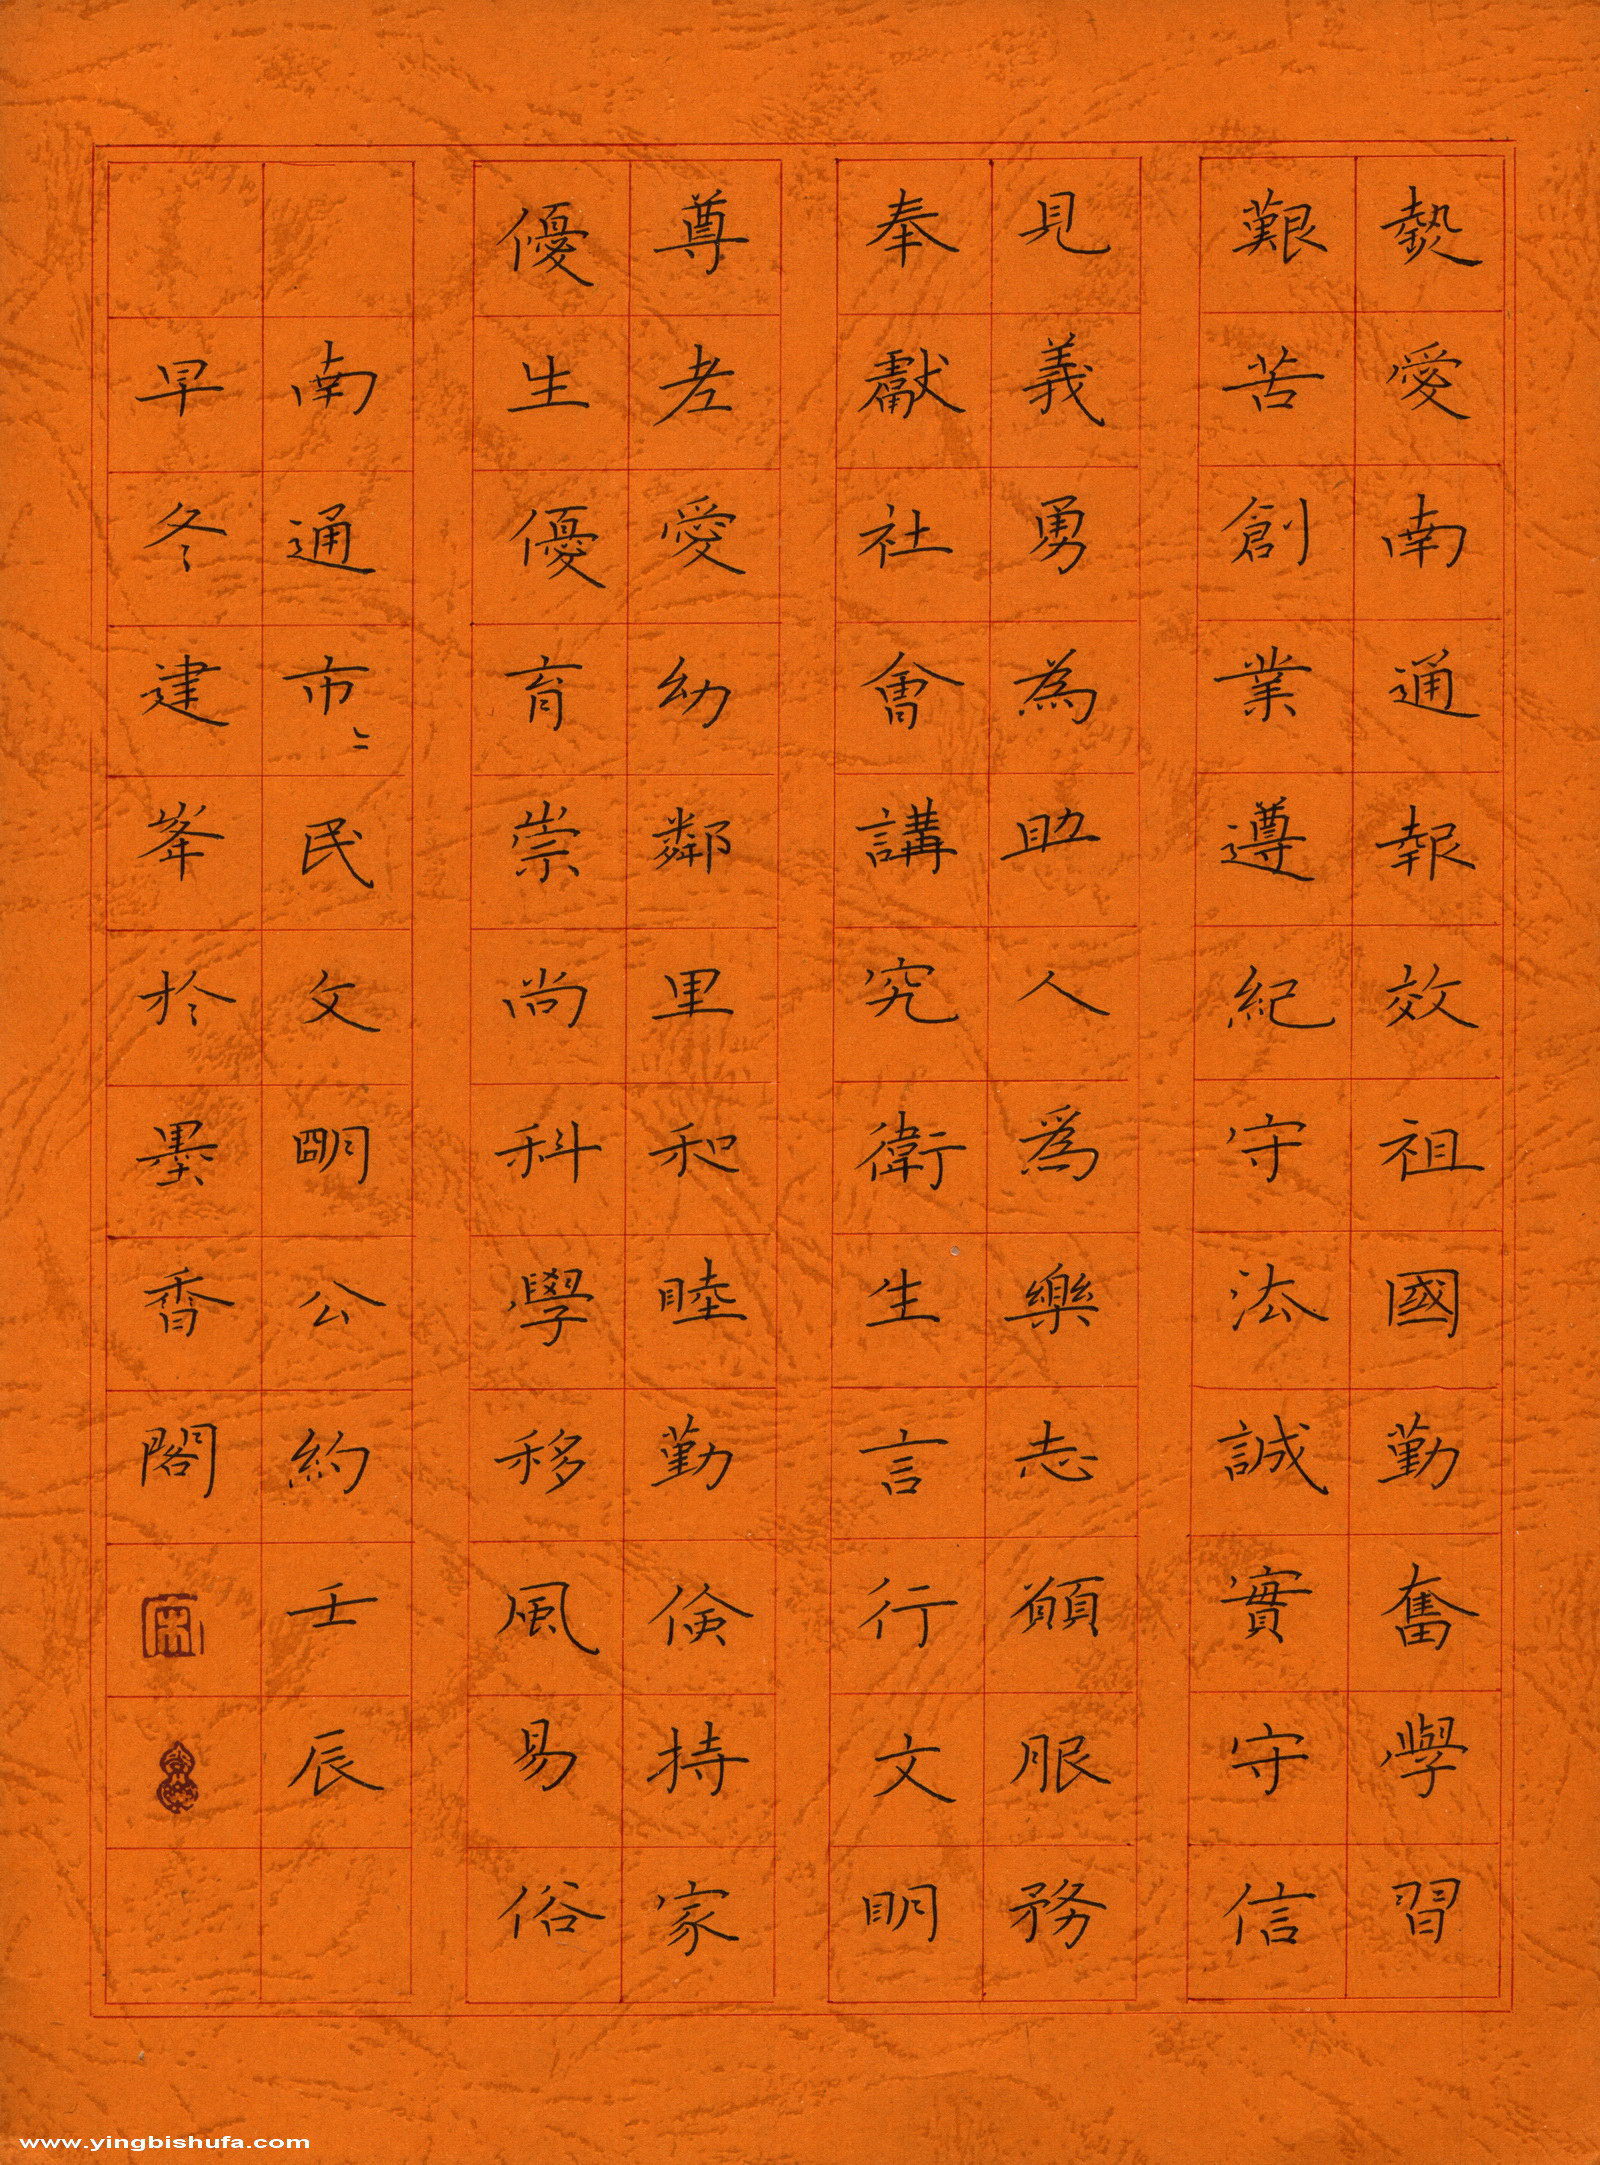 熱愛南通報效祖國勤奮學習
艱苦創業遵紀守法誠實守信
見義勇為助人爲樂志願服務
奉獻社會講究衛生言行文明
尊老愛幼鄰里和睦勤儉持家
優生優育崇尚科學移風易俗
南通市市民文明公約壬辰
早冬建峯於墨香閣
www.yingbishufa.com